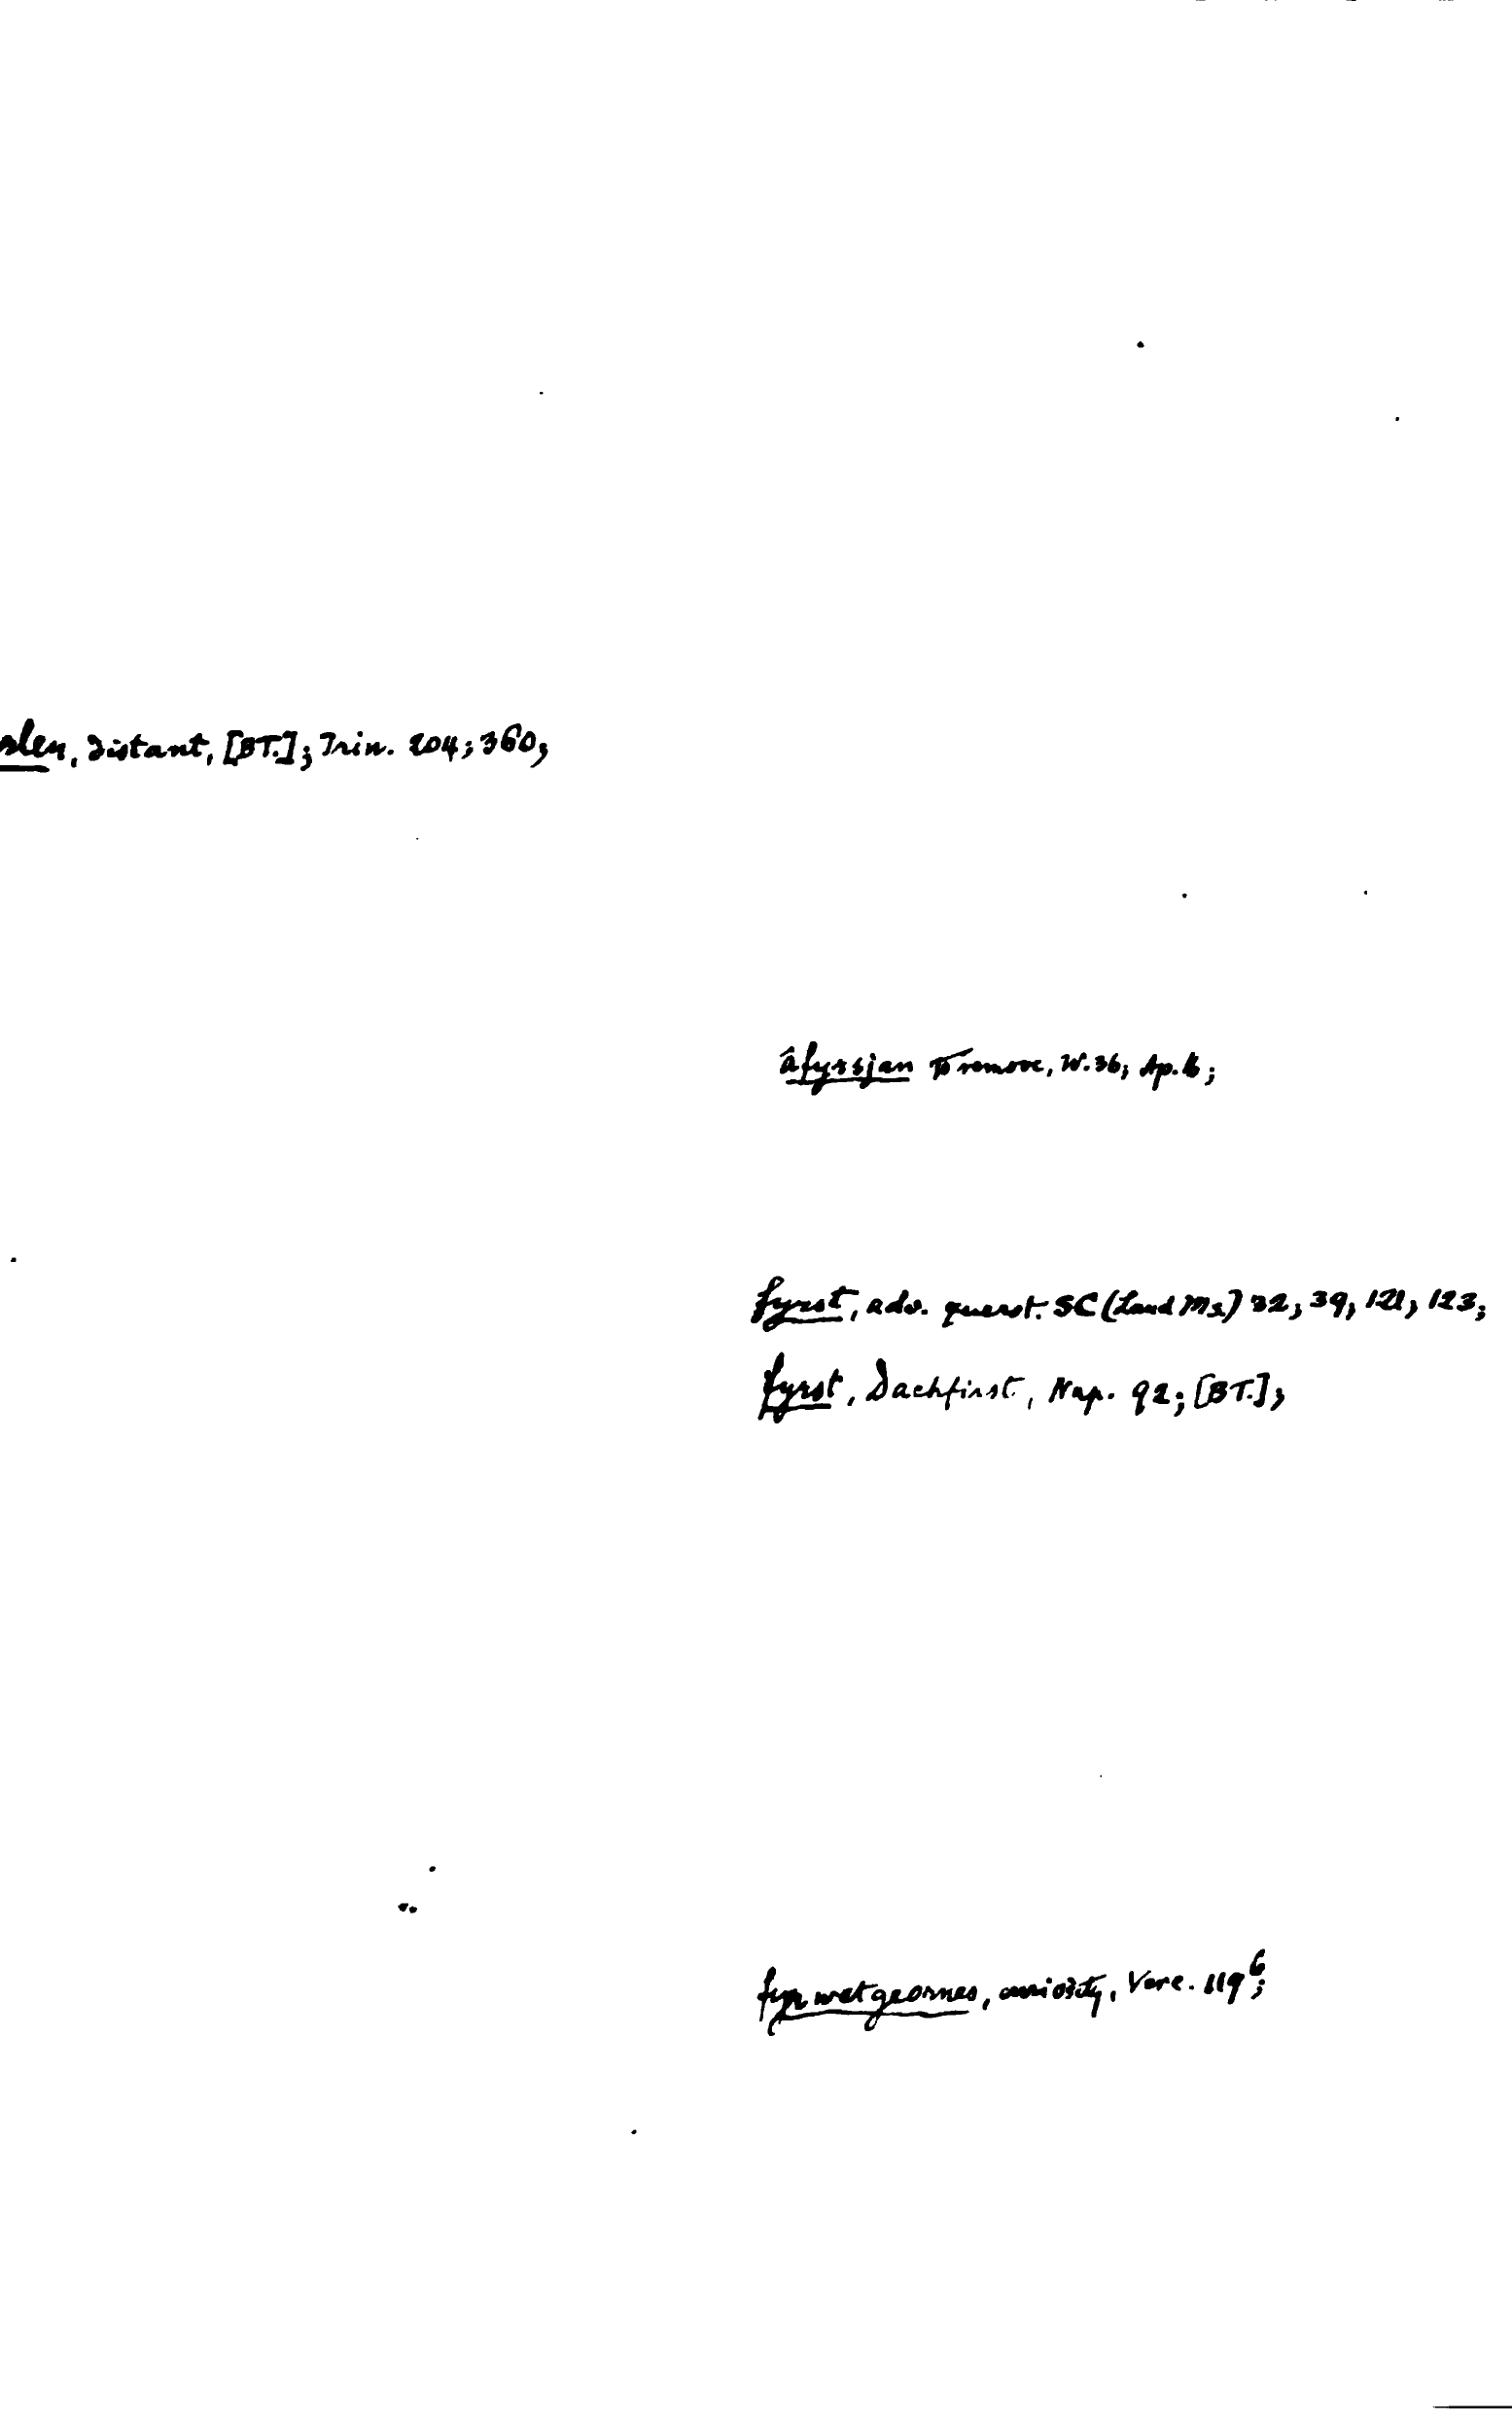 rlen, distant, [BT.]; Trin. 204; 360;
âfyrsian to remove, W. 36; Ap. 6;
fyrst, adv. querst. SC (Laud Ms) 32; 39; 121; 123;
fyrst, Dachfirst, Nap. 92; [BT.];
fyrwetgeornes, curiosity, Verc. 119⁶;